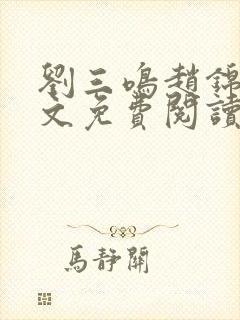 劉三鳴趙錦
文免費閱讀
馬靜開